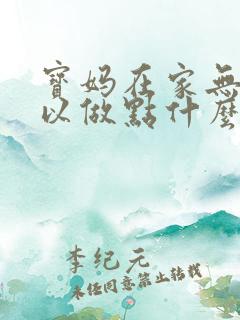 寶媽在家無
以做點什麼
李纪元
未经同意禁止转载